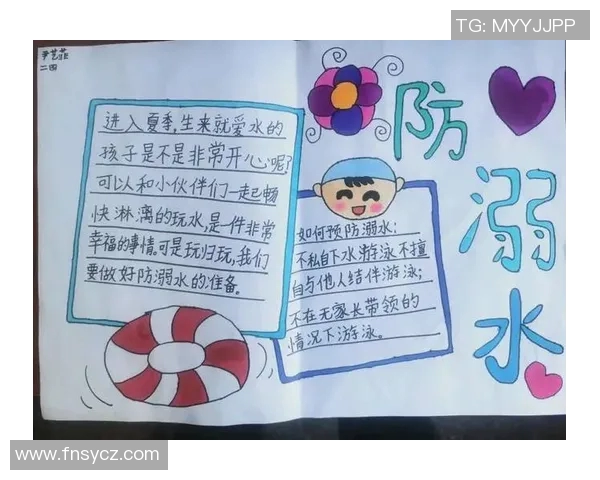 TG: MYYJJPP
尹艺菲
二四
防溺水
进入夏季,生来就爱水的
孩子是不是非常开心呢?
可以和小伙伴们一起畅
快淋漓的玩水,是一件非常
幸福的事情。可是玩归玩,我们
要做好防溺水的准备。
如何预防溺水:
不私自下水游泳不擅
自与他人结伴游泳;
不在无家长带领的
情况下游泳。
www.fnsycz.com